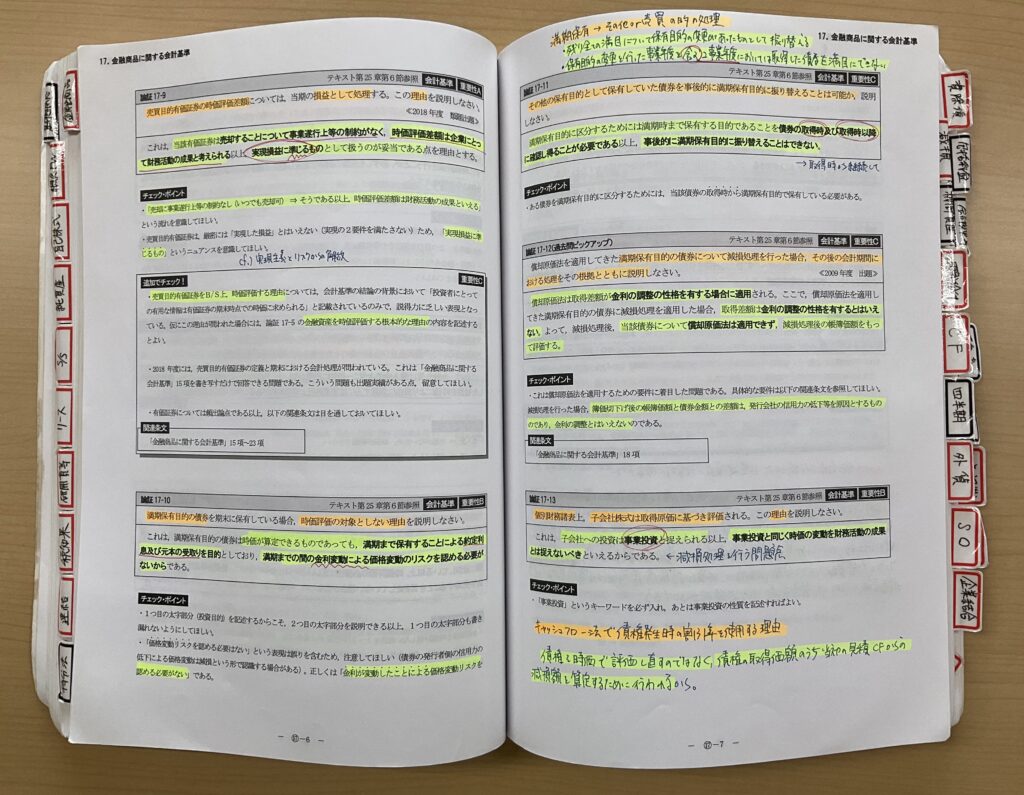 17. 金融商品に関する会計基準
論証 17-9
テキスト第25章第6節参照 会計基準 重要性A
売買目的有価証券の時価評価差額については,当期の損益として処理する。この理由を説明しなさい。
≪2018年度 類題出題≫
これは,当該有価証券は売却することについて事業遂行上等の制約がなく,時価評価差額は企業にとっ
て財務活動の成果と考えられる以上,実現損益に準じるものとして扱うのが妥当である点を理由とする。
チェック・ポイント
・「売却に事業遂行上等の制約なし(いつでも売却可) ⇒ そうである以上,時価評価差額は財務活動の成果といえる」
という流れを意識してほしい。
・売買目的有価証券は,厳密には「実現した損益」とはいえない(実現の2要件を満たさない)ため,「実現損益に準
じるもの」というニュアンスを意識してほしい。
cf.) 実現主義とリスクからの解放
追加でチェック!
重要性C
・売買目的有価証券をB/S上,時価評価する理由については,会計基準の結論の背景において「投資者にとって
の有用な情報は有価証券の期末時点での時価に求められる」と記載されているのみで,説得力に乏しい表現となっ
ている。仮にこの理由が問われた場合には,論証17-5の金融資産を時価評価する根本的な理由の内容を記述すると
よい。
・2018年度には,売買目的有価証券の定義と期末における会計処理が問われている。これは「金融商品に関する
会計基準」15項を書き写すだけで回答できる問題である。こういう問題も出題実績がある点,留意してほしい。
・有価証券については頻出論点である以上,以下の関連条文は目を通しておいてほしい。
関連条文
「金融商品に関する会計基準」15項~23項
論証 17-10
テキスト第25章第6節参照 会計基準 重要性B
満期保有目的の債券を期末に保有している場合,時価評価の対象としない理由を説明しなさい。
これは,満期保有目的の債券は時価が算定できるものであっても,満期まで保有することによる約定利
息及び元本の受取りを目的としており,満期までの間の金利変動による価格変動のリスクを認める必要が
ないからである。
チェック・ポイント
・1つ目の太字部分(投資目的)を記述するからこそ,2つ目の太字部分を説明できる以上,1つ目の太字部分も書き
漏れないようにしてほしい。
・「価格変動リスクを認める必要はない」という表現は誤りを含むため,注意してほしい(債券の発行者側の信用力の
低下による価格変動は減損という形で認識する場合がある)。正しくは「金利が変動したことによる価格変動リスクを
認める必要がない」である。
- ⑰-6 -
満期保有→その他or売買の目的の処理
・残り全ての満目について保有目的の変更があったものとして振り替える
・保有目的の変更を行った事業年度を含む2事業年度においては取得した債券を満目にできない
17. 金融商品に関する会計基準
論証 17-11
テキスト第25章第6節参照 会計基準 重要性C
その他の保有目的として保有していた債券を事後的に満期保有目的に振り替えることは可能か,説明
しなさい。
満期保有目的に区分するためには満期時まで保有する目的であることを債券の取得時及び取得時以降
に確認し得ることが必要である以上,事後的に満期保有目的に振り替えることはできない。
→取得時から継続して
チェック・ポイント
・ある債券を満期保有目的に区分するためには,当該債券の取得時から満期保有目的で保有している必要がある。
論証 17-12(過去問ピックアップ)
テキスト第25章第6節参照 会計基準 重要性C
償却原価法を適用してきた満期保有目的の債券について減損処理を行った場合,その後の会計期間に
おける処理をその根拠とともに説明しなさい。
≪2009年度 出題≫
償却原価法は取得差額が金利の調整の性格を有する場合に適用される。ここで,償却原価法を適用し
てきた満期保有目的の債券に減損処理を適用した場合,取得差額は金利の調整の性格を有するとはいえ
ない。よって,減損処理後,当該債券について償却原価法は適用できず,減損処理後の帳簿価額をもっ
て評価する。
チェック・ポイント
・これは償却原価法を適用するための要件に着目した問題である。具体的な要件は以下の関連条文を参照してほしい。
減損処理を行った場合,簿価切下げ後の帳簿価額と債券金額との差額は,発行会社の信用力の低下等を原因とするもの
のであり,金利の調整とはいえないのである。
関連条文
「金融商品に関する会計基準」18項
論証 17-13
テキスト第25章第6節参照 会計基準 重要性B
個別財務諸表上,子会社株式は取得原価に基づき評価される。この理由を説明しなさい。
これは,子会社への投資は事業投資と捉えられる以上,事業投資と同じく時価の変動を財務活動の成果
とは捉えないべきといえるからである。
←減損処理を行う問題点
チェック・ポイント
・「事業投資」というキーワードを必ず入れ,あとは事業投資の性質を記述すればよい。
キャッシュフロー法で債権発生時の割引率を使用する理由
債権を時価で評価し直すのではなく,債権の取得価額のうち当初の見積CFからの
減損額を算定するために行われるから。
- ⑰-7 -
自己株式
純資産
リース
CF
四半期
外貨
SO
企業結合